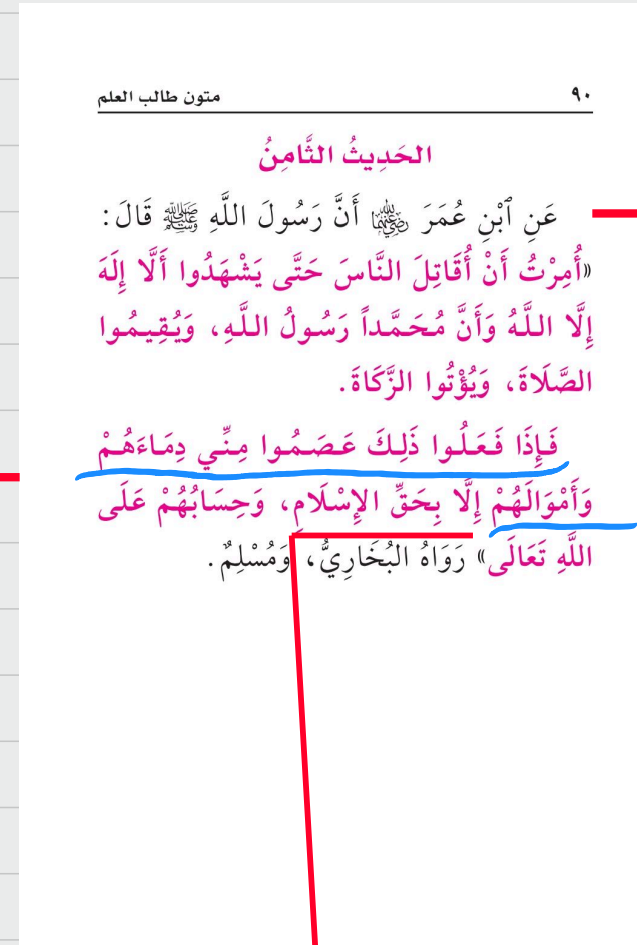 ٩٠
متون طالب العلم
الحَدِيثُ الثَّامِنُ
عَنِ ٱبْنِ عُمَرَ رضي الله عنهما أَنَّ رَسُولَ اللَّهِ ﷺ قَالَ:
«أُمِرْتُ أَنْ أُقَاتِلَ النَّاسَ حَتَّى يَشْهَدُوا أَلَّا إِلَهَ
إِلَّا اللَّهُ وَأَنَّ مُحَمَّداً رَسُولُ اللَّهِ، وَيُقِيمُوا
الصَّلَاةَ، وَيُؤْتُوا الزَّكَاةَ.
فَإِذَا فَعَلُوا ذَلِكَ عَصَمُوا مِنِّي دِمَاءَهُمْ
وَأَمْوَالَهُمْ إِلَّا بِحَقِّ الإِسْلَامِ، وَحِسَابُهُمْ عَلَى
اللَّهِ تَعَالَى» رَوَاهُ البُخَارِيُّ، وَمُسْلِمٌ.